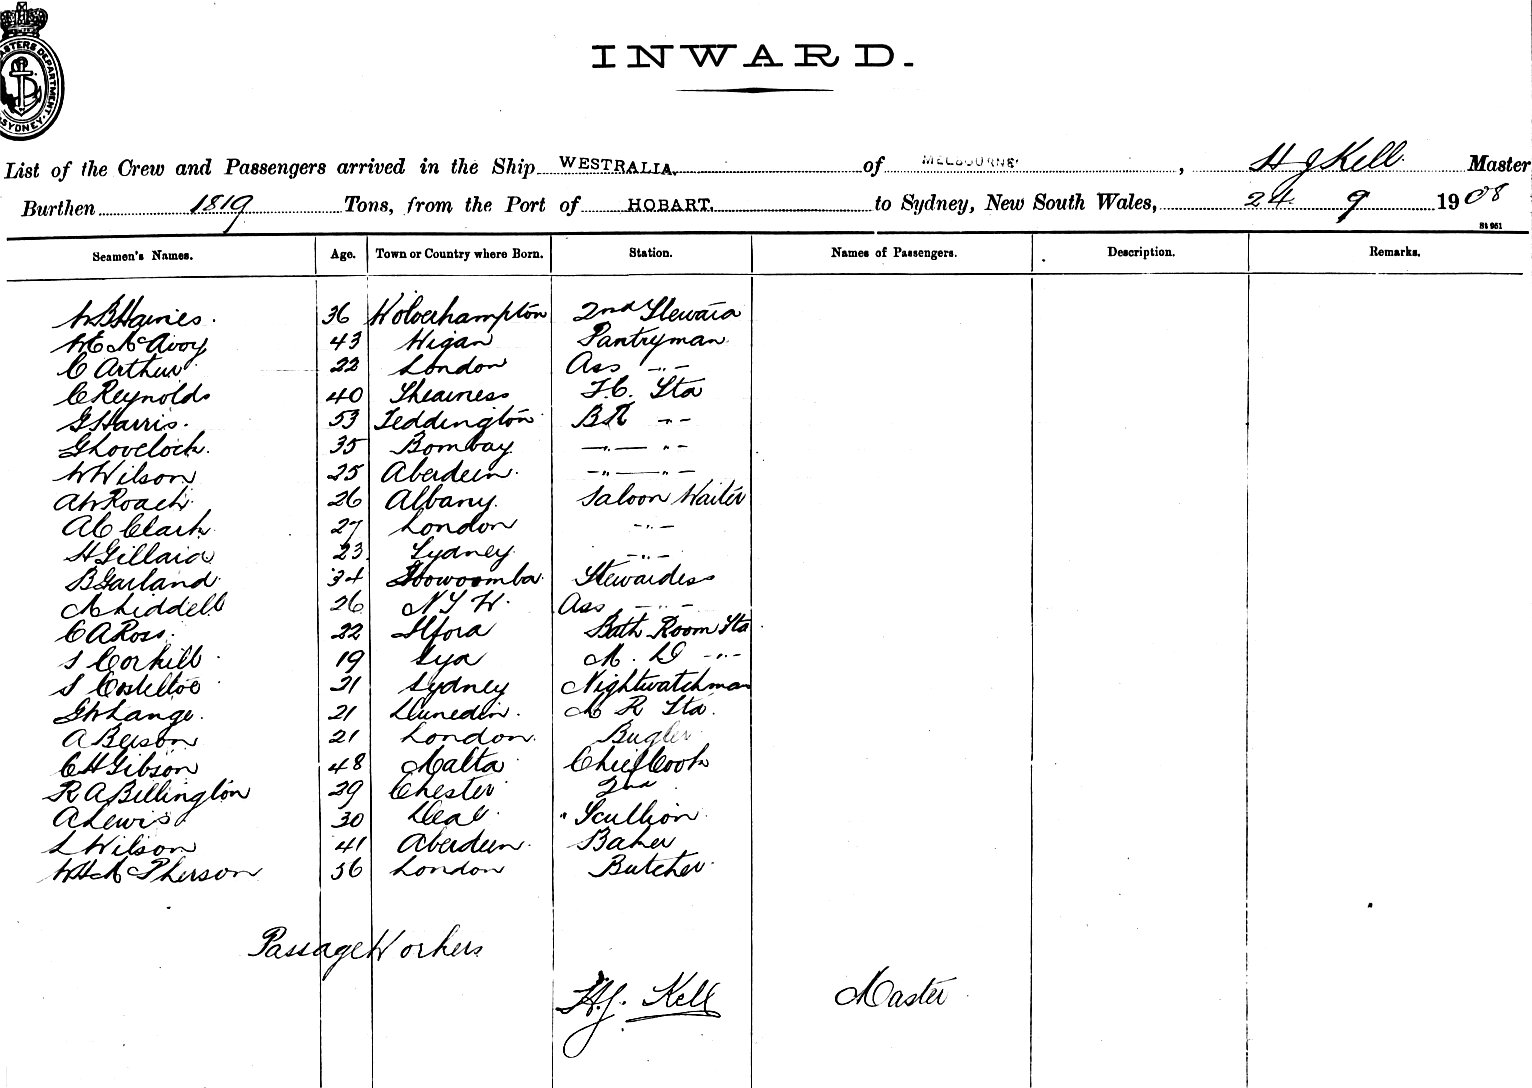 INWARD.
MASTERS DEPARTMENT SYDNEY
List of the Crew and Passengers arrived in the Ship WESTRALIA. of MELBOURNE, H J Kell Master
Burthen 1819 Tons, from the Port of HOBART. to Sydney, New South Wales, 24 9 1908
Seamen's Names. Age. Town or Country where Born. Station. Names of Passengers. Description. Remarks.
W B Haines. 36 Wolverhampton 2nd Steward
W E McAvoy 43 Wigan Pantryman
C Arthur 22 London Ass -"-
C Reynolds 40 Sheerness F.C. Std
G Harris. 53 Teddington B R -"-
G Lovelock. 35 Bombay. -"- "-
W Wilson 25 Aberdeen. -"- "-
A W Roach 26 Albany. Saloon Waiter
A C Clark 27 London -"-
H Gillard 23 Sydney. -"-
B Garland 34 Toowoomba. Stewardess
M Liddell 26 N S W. Ass -"-
C A Ross. 22 Ilford Bath Room Std
S Corkill 19 M. -"-
S Costelloe 21 Sydney Nightwatchman
G W Lange. 21 Dunedin. M R Std.
A Beeson 21 London. Bugler
C H Gibson 48 Malta Chief Cook
R A Billington 29 Chester 2nd
A Lewis 30 Deal " Scullion
L Wilson 41 Aberdeen. Baker
W H McPherson 36 London Butcher
Passage Workers
H.J. Kell Master